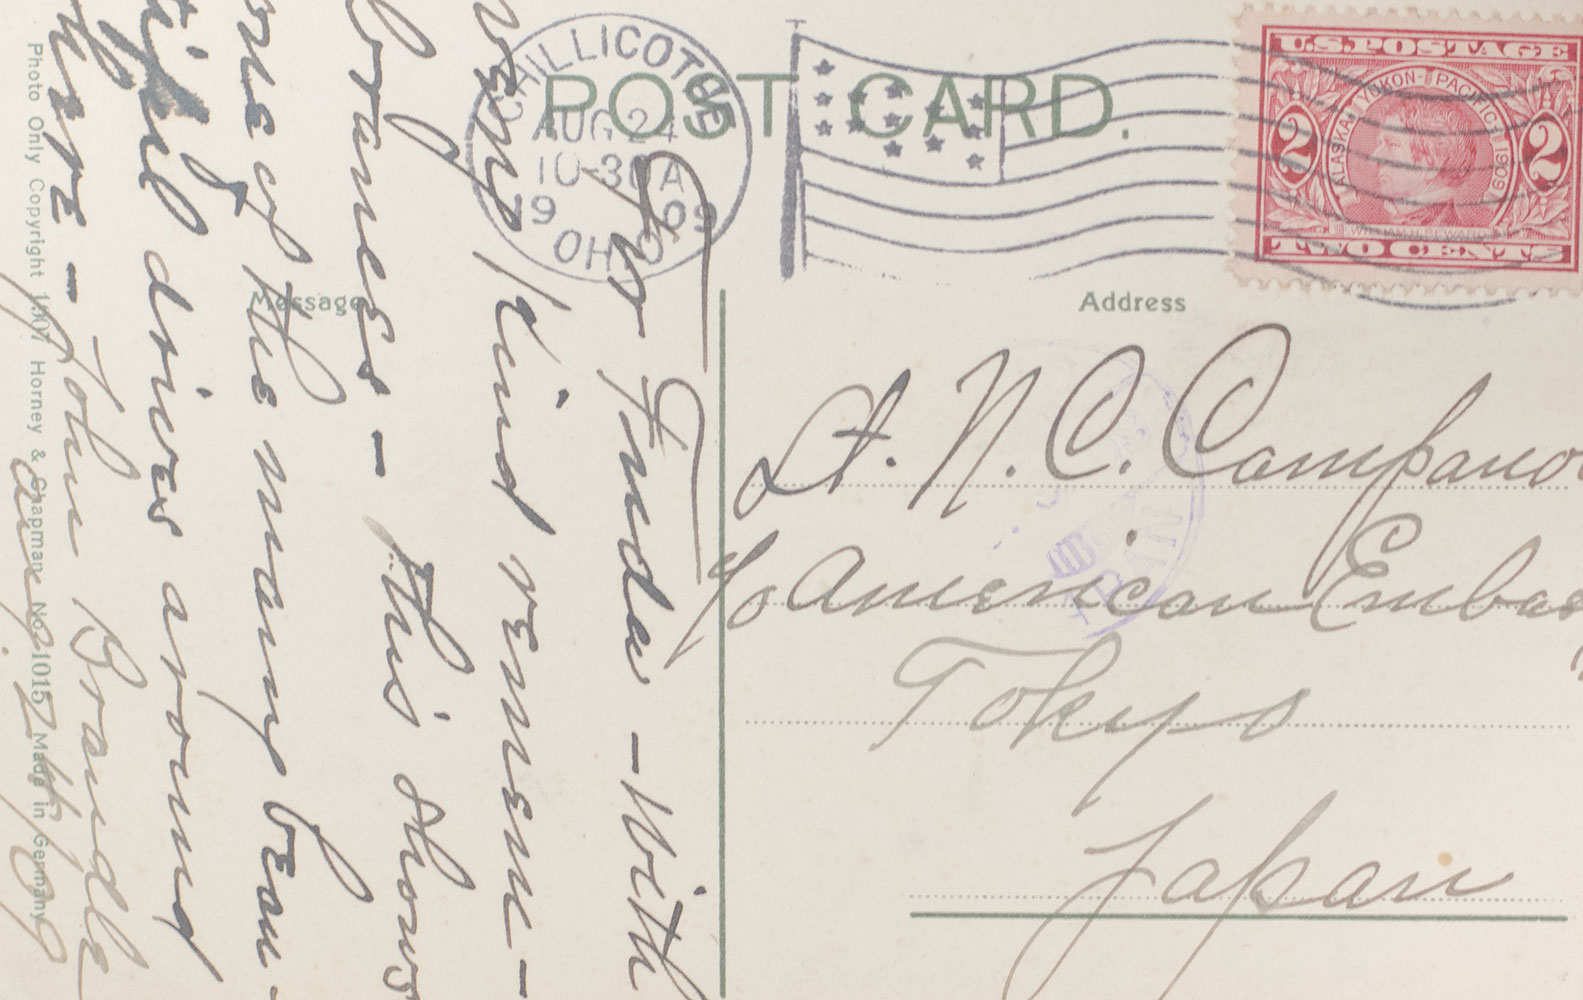 POST CARD.
CHILLICOTHE
AUG 24
10-30 A
1909
OHIO
U.S. POSTAGE
ALASKA-YUKON-PACIFIC 1909
2 2
WILLIAM H. SEWARD
TWO CENTS
Message
Address
For Finda - With
very kind remem-
brances - This shows
one of the many beau-
tiful drives around
here - John Brandle
Aug 24/09
Lt. N. C.
c/o American
Tokyo
Japan
JAPAN
Photo Only Copyright 1907 Horney & Chapman No 21015 Made in Germany